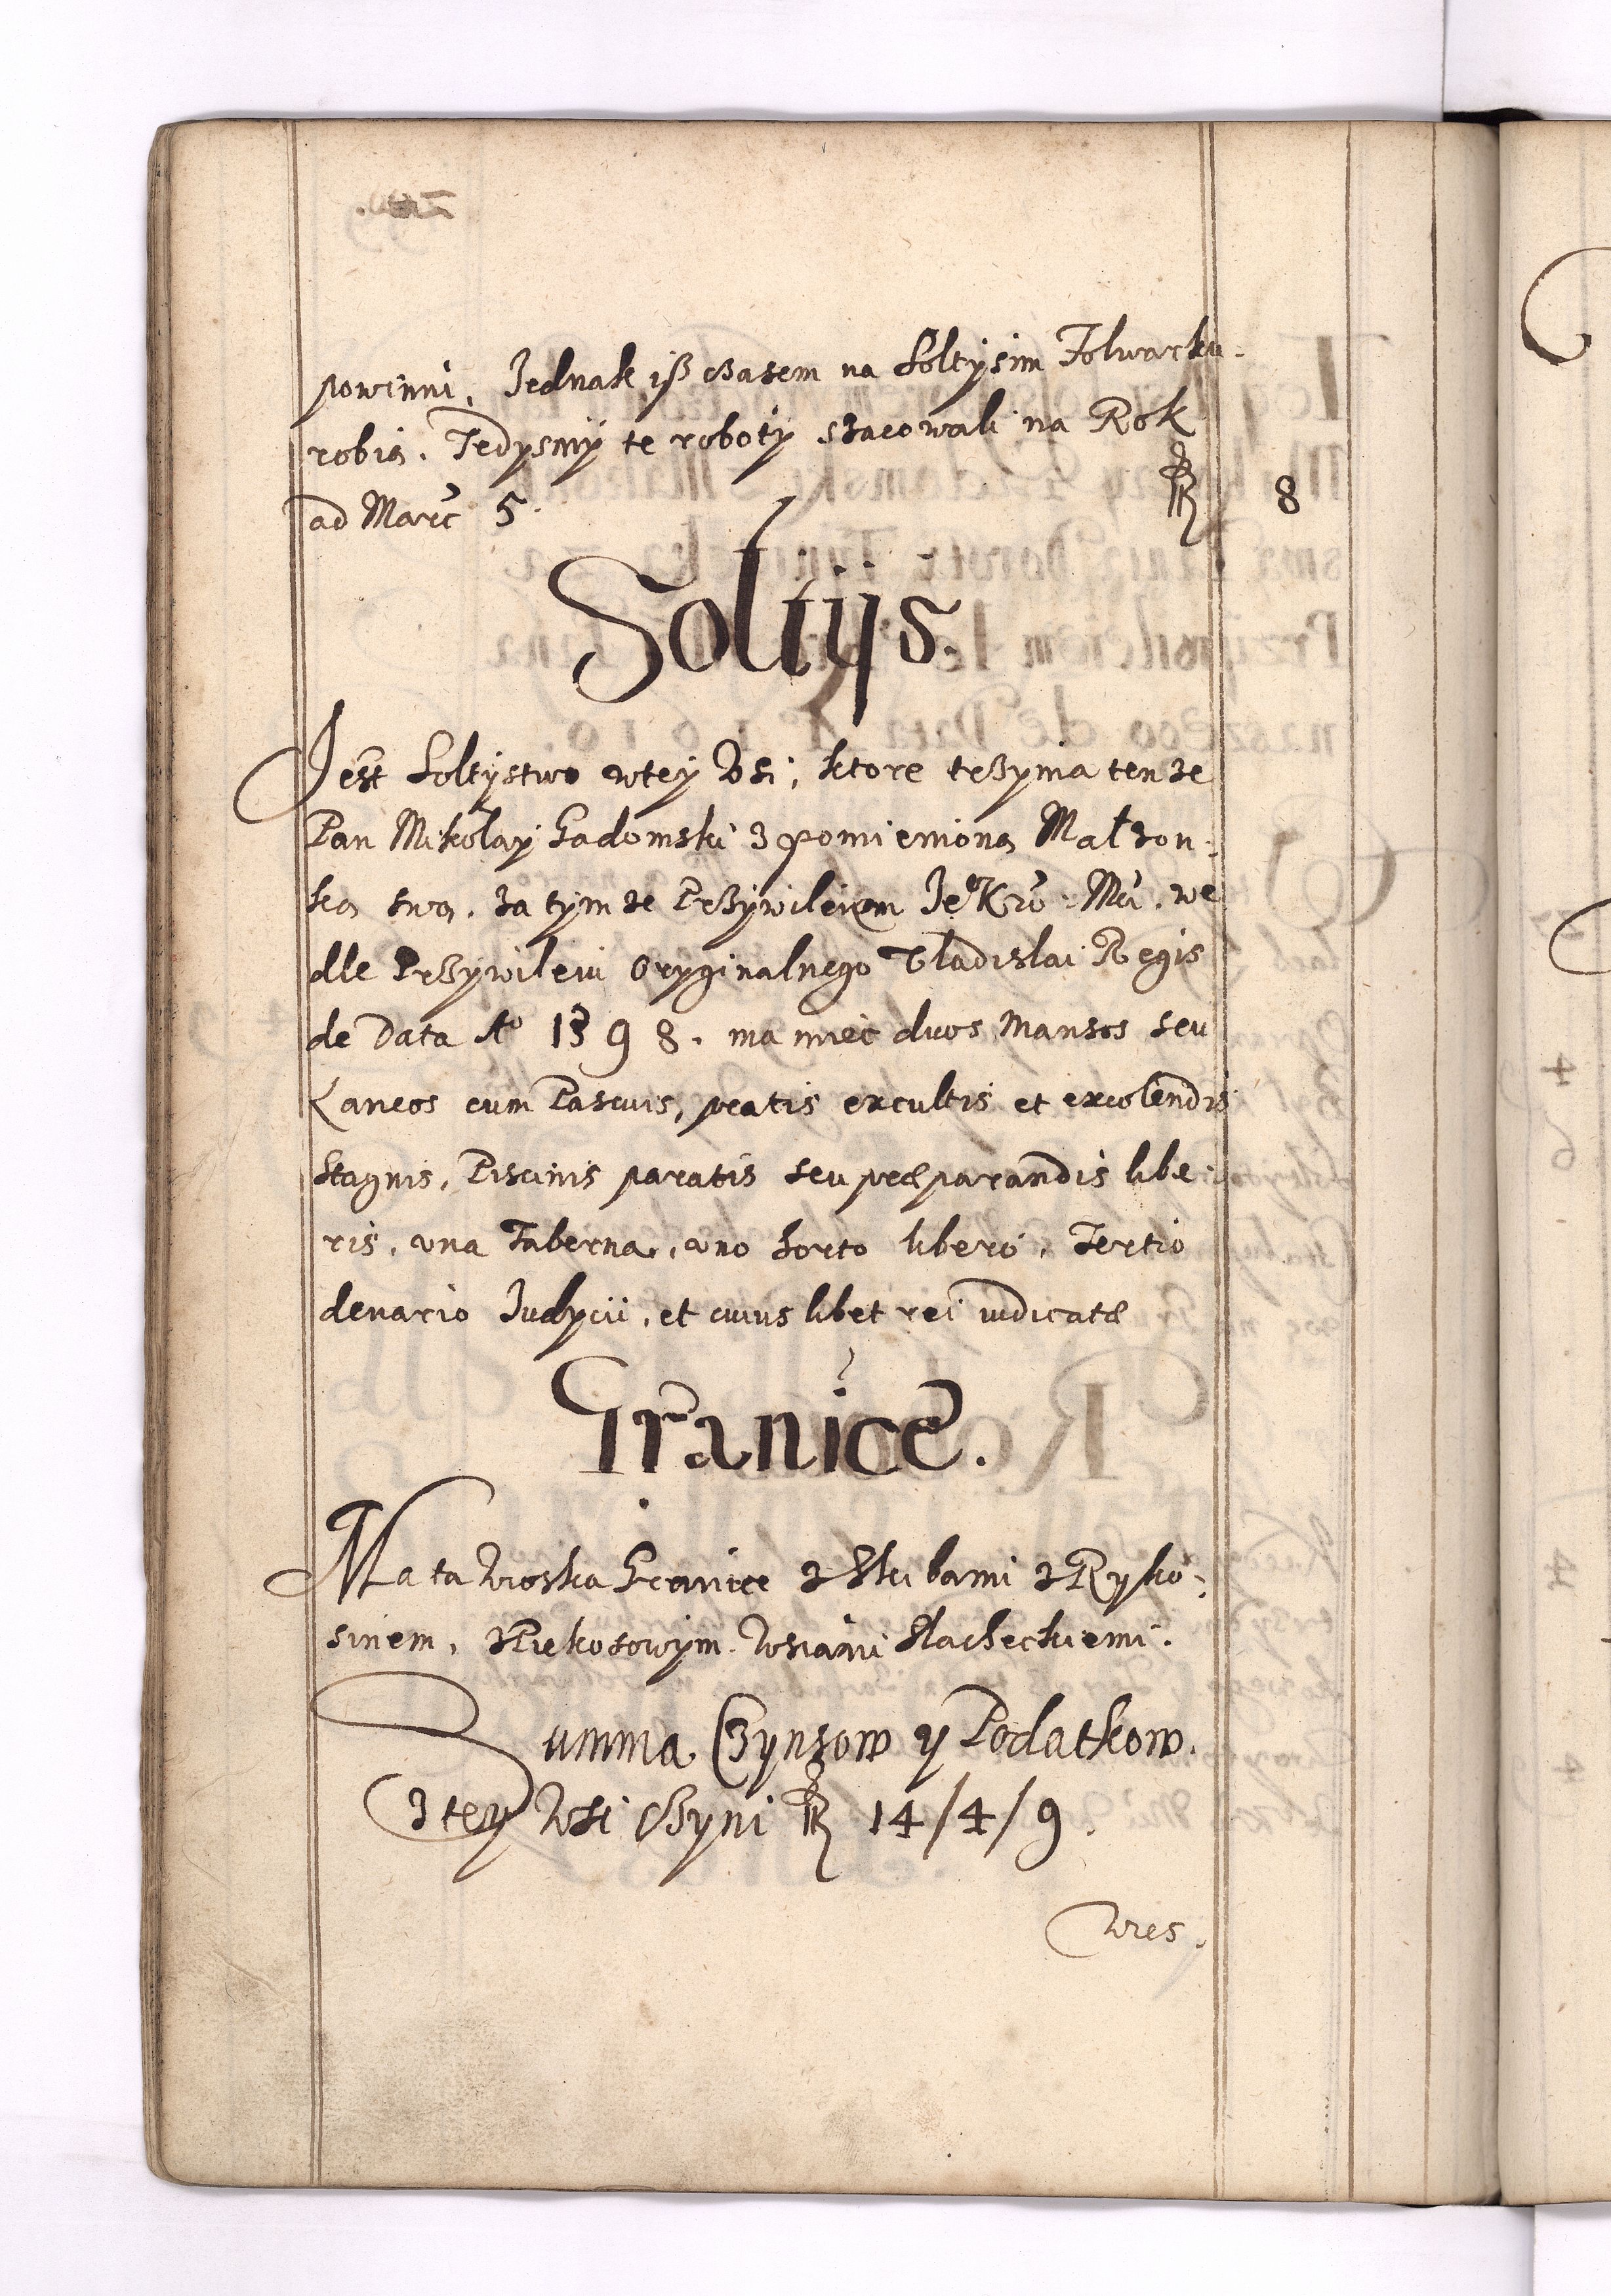 powinni, Jednak iß cżasem na Sołtysim Folwarku
robią. Tedysmy te roboty szacowali na Rok
ad Marc 5. 8
Soltys.
Jest Soltystwo wtey Wsi, ktore trzyma tenze
Pan Mikołay Gadomski z pomienioną Małzon:
ką swą, za tymze Przywileiem Je° Kro: Mci. we
dle Przywileiu Oryginalnego Vladislai Regis
de Data A° 1598. ma miec duos Mansos seu
Laneos cum Pascuis, pratis excultis et excolendis
Stagnis, Piscinis paratis seu præparandis libe:
ris, una Taberna, uno horto libero, Tertio
denario Judycii, et cuius libet rei iudicatæ
Granice.
Ma ta Wioska Granice z Skubami z Ryko:
sinem, z Piekosowym Wsiami Slacheckiemi.
Summa Czynszow y Podatkow
z tey Wsi Czyni 14/4/9.
Wies.